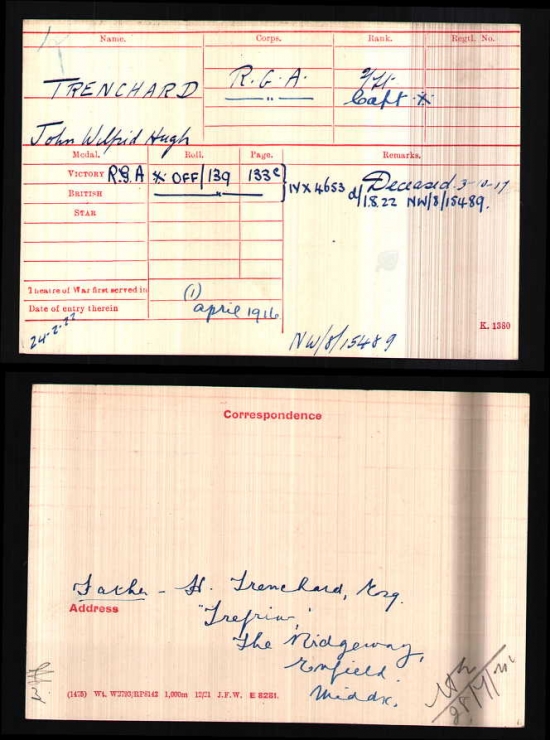 Name. Corps. Rank. Regtl. No.
TRENCHARD R.G.A. 2/Lt.
—"— Capt ✻
John Wilfrid Hugh
Medal. Roll. Page. Remarks.
VICTORY R.G.A ✻ OFF/139 133c } IVX4653 Deceased 3-10-17
BRITISH —✻— d/1.8.22 NW/8/15489.
STAR
Theatre of War first served in (1)
Date of entry therein april 1916 K. 1380
24-2-22 NW/8/15489
Correspondence
Father - H. Trenchard, Esq.
Address
The Ridgeway,
Enfield
Middx.
J.F.W. E 8281.